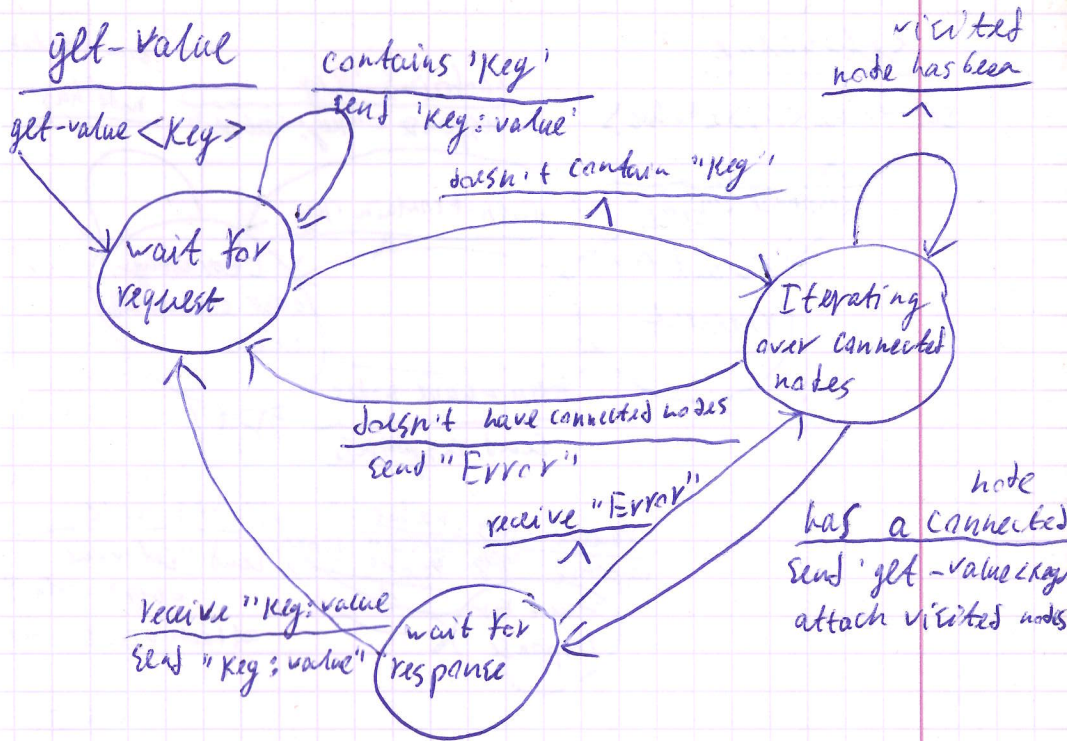 get-value
get-value <Key>
contains 'Key'
send 'Key: value'
visited
node has been
Λ
doesn't contain "Key"
Λ
wait for
request
Iterating
over connected
nodes
doesn't have connected nodes
send "Error"
receive "Error"
Λ
node
has a connected
send 'get-value<Key
attach visited nodes
receive "Key: value
send "Key: value"
wait for
response